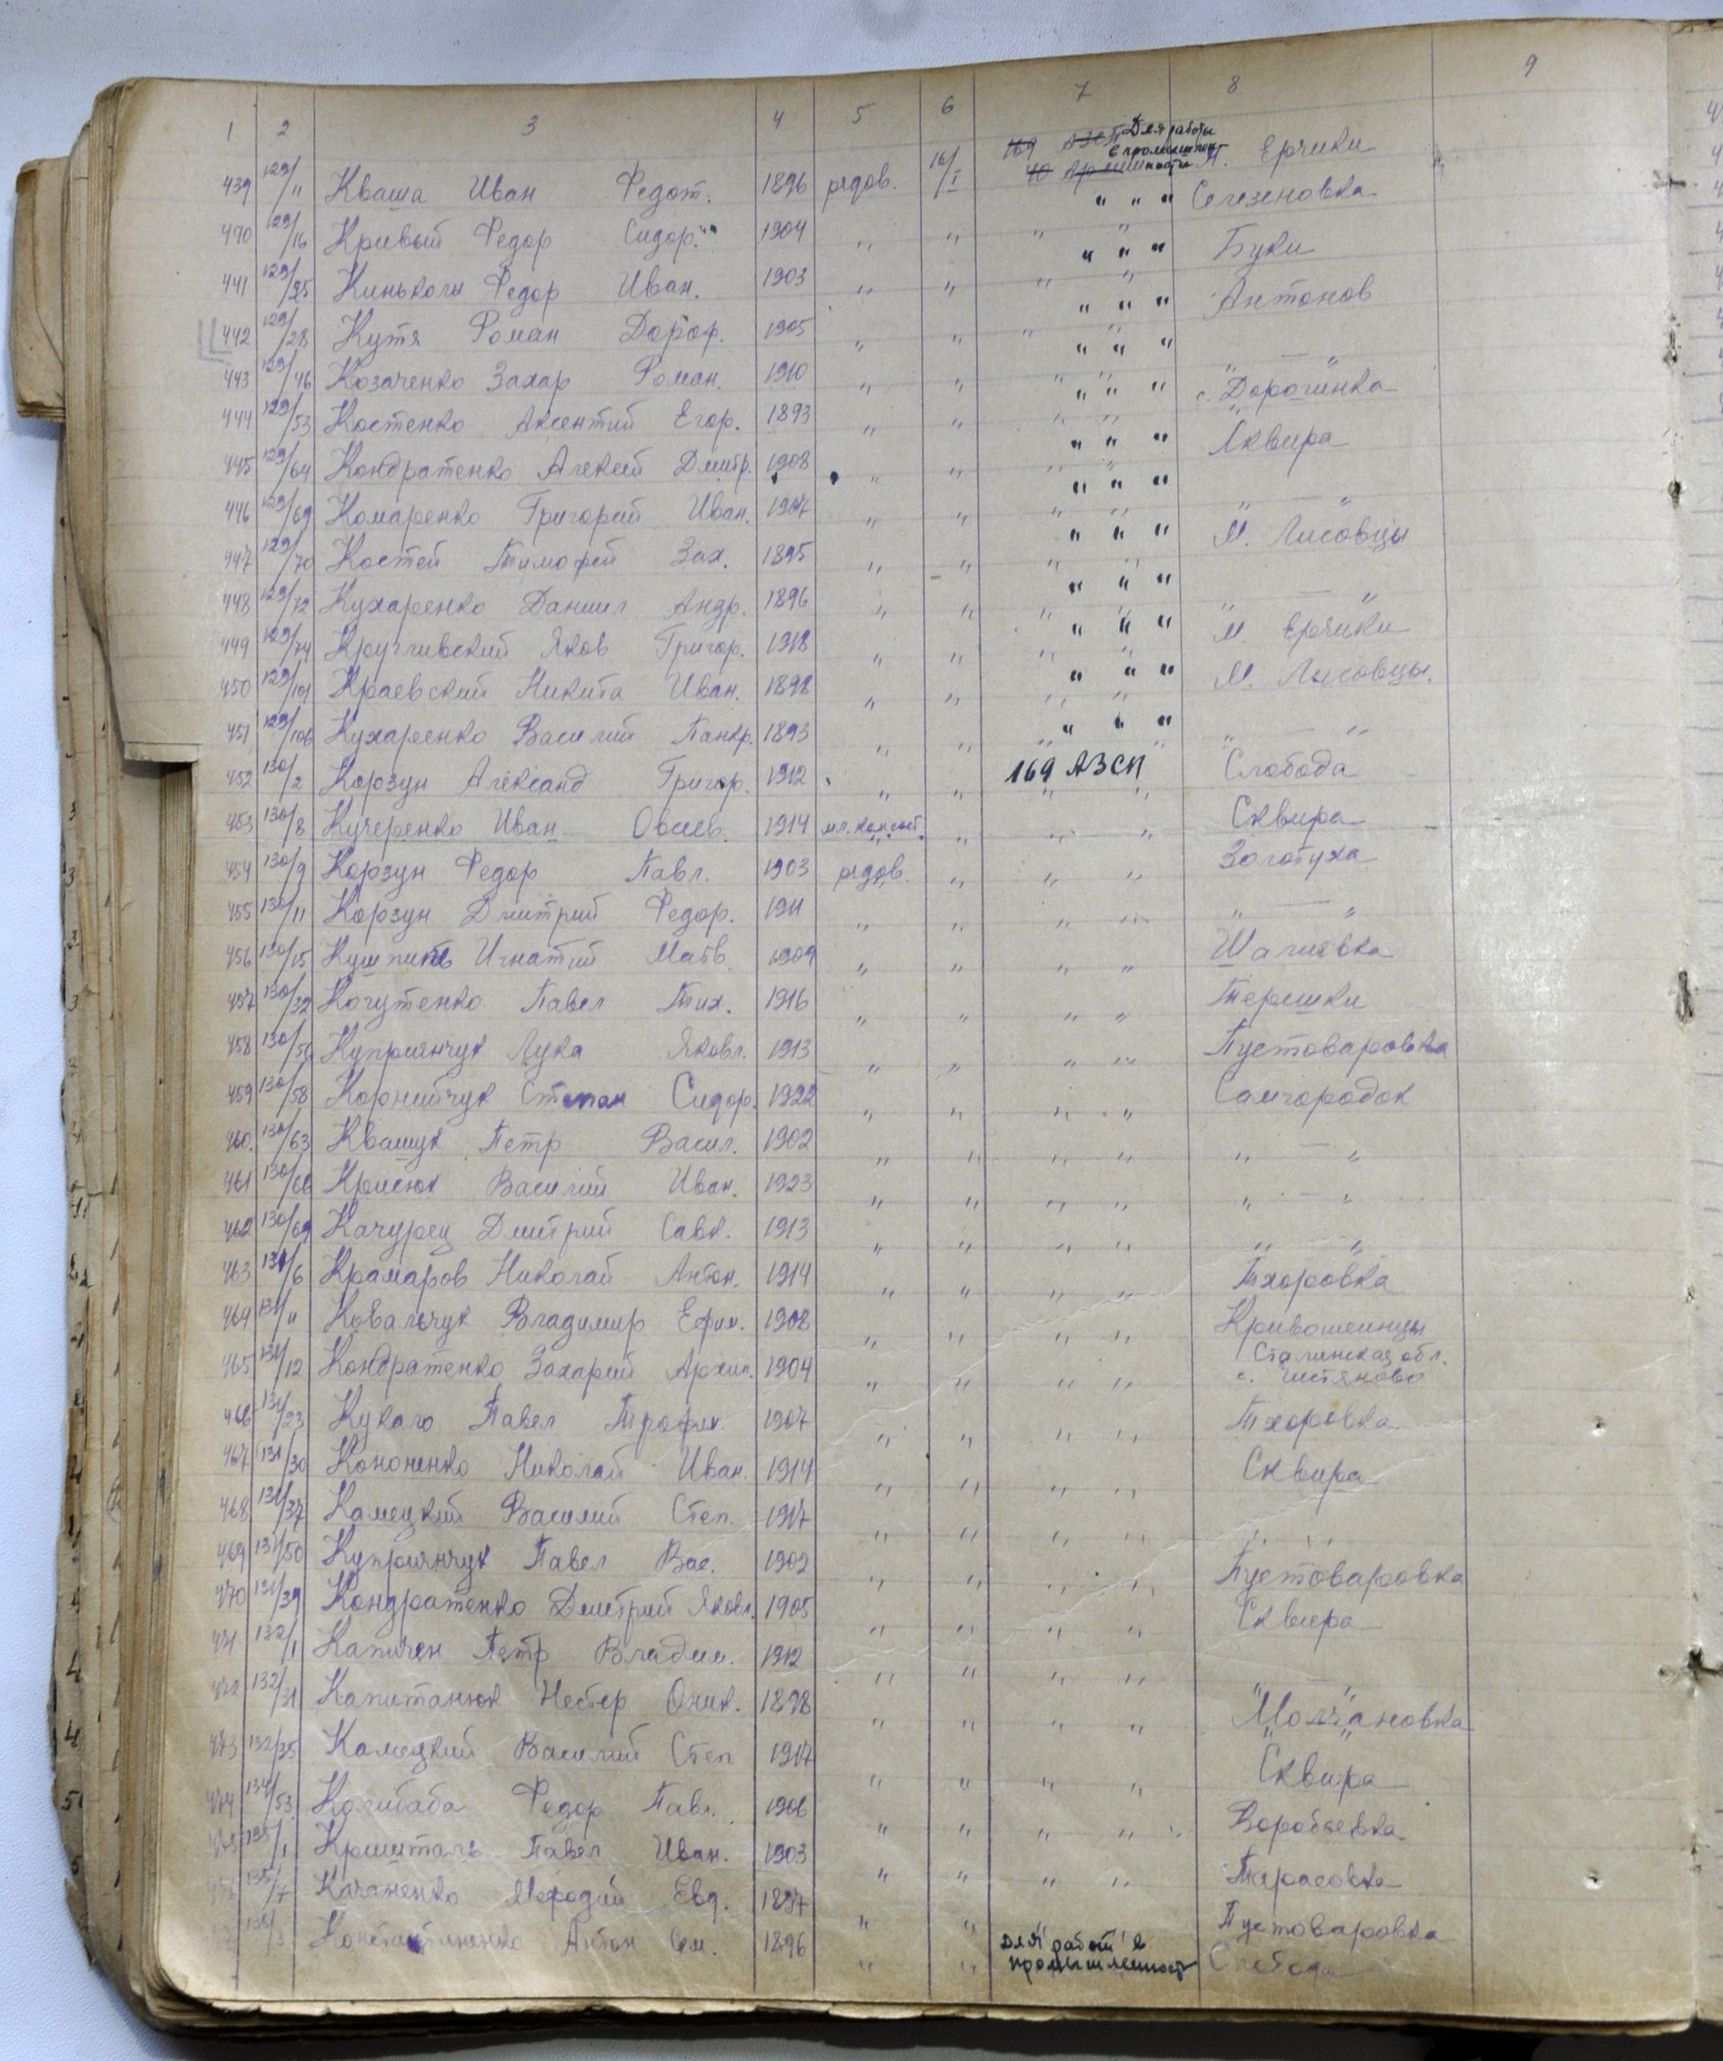 1 2 3 4 5 6 7 8 9
439 129/11 Кваша Иван Федот. 1896 рядов. 16/I Для работы в промышлен ности М. Ерчики
440 129/16 Кривый Федор Сидор. 1904 " " " " " Селезеновка
441 129/25 Кинькоги Федор Иван. 1903 " " " " " Буки
442 129/28 Кутя Роман Дороф. 1905 " " " " " Антонов
443 129/46 Козаченко Захар Роман. 1910 " " " " " " — "
444 129/53 Костенко Аксентий Егор. 1893 " " " " " с. Дорогинка
445 129/64 Кондратенко Алексей Дмитр. 1908 " " " " " Сквира
446 129/69 Комаренко Григорий Иван. 1907 " " " " " " — "
447 129/70 Костей Тимофей Зах. 1895 " " " " " М. Лисовцы
448 129/72 Кухаренко Даниил Андр. 1896 " " " " " " — "
449 129/74 Кругливский Яков Григор. 1918 " " " " " М. Ерчики
450 129/101 Краевский Никита Иван. 1898 " " " " " М. Лисовцы.
451 129/106 Кухаренко Василий Панкр. 1893 " " " " " " — "
452 130/2 Корзун Александ Григор. 1912 " " 169 АЗСП Слобода
453 130/8 Кучеренко Иван Овсев. 1914 мл. комсост. " " " Сквира
454 130/9 Корзун Федор Павл. 1903 рядов. " " " Золотуха
455 130/11 Корзун Дмитрий Федор. 1911 " " " " " — "
456 130/15 Игнатий Матв. 1909 " " " " Шалиевка
457 130/32 Когутенко Павел Тих. 1916 " " " " Терешки
458 130/56 Куприянчук Лука Яковл. 1913 " " " " Пустоваровка
459 130/58 Корнийчук Степан Сидор. 1922 " " " " Самгородок
460. 130/63 Квашук Петр Васил. 1902 " " " " " — "
461 130/66 Крисюк Василий Иван. 1923 " " " " " — "
462 130/69 Качурец Дмитрий Савк. 1913 " " " " " — "
463 131/6 Крамаров Николай Антон. 1914 " " " " Тхоровка
464 131/11 Ковальчук Владимир Ефим. 1908 " " " " Кривошеинцы
465 131/12 Кондратенко Захарий Архип. 1904 " " " " Сталинская обл.
с. Чистяково
466 131/23 Кукало Павел Трофим. 1907 " " " " Тхоровка
467 131/30 Кононенко Николай Иван. 1914 " " " " Сквира
468 131/37 Камецкий Василий Степ. 1917 " " " " " "
469 131/50 Куприянчук Павел Вас. 1902 " " " " Пустоваровка
470 131/39 Кондратенко Дмитрий Яковл. 1905 " " " " Сквира
471 132/1 Петр Владим. 1912 " " " " " — "
472 132/31 Капитанюк Нестер Оник. 1898 " " " " Молчановка
473 132/35 Камецкий Василий Степ 1917 " " " " Сквира
474 134/53 Колибаба Федор Павл. 1906 " " " " Воробьевка
475 135/1 Кришталь Павел Иван. 1903 " " " " Тарасовка
135/7 Качаненко Мефодий Евд. 1897 " " Пустоваровка
Константиненко Антон Сем. 1896 " " Для работ в промышленност Слобода